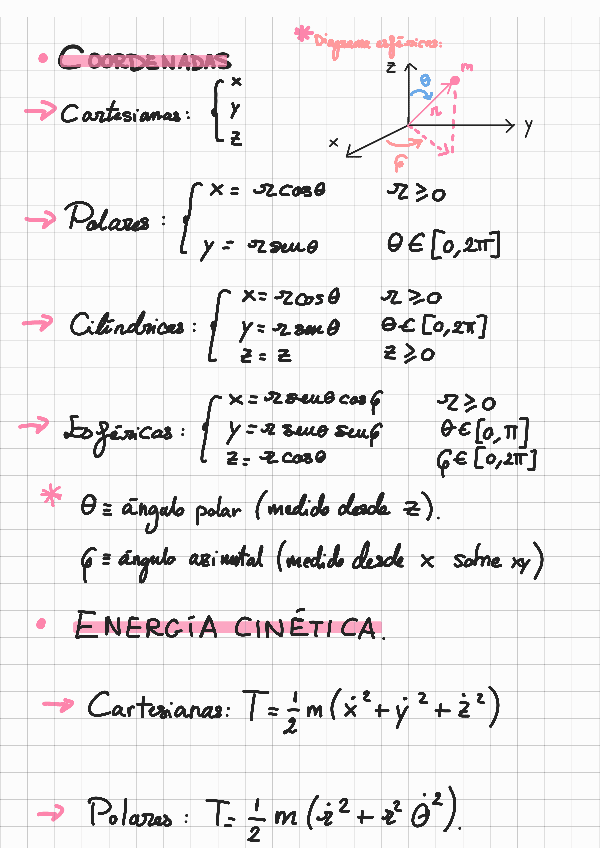 • COORDENADAS
* Diagrama esféricas:
z θ m
r
y
x
φ
→ Cartesianas: { x
y
z
→ Polares: { x = r cosθ r ⩾ 0
y = r senθ θ ∈ [0, 2π]
→ Cilíndricas: { x = r cosθ r ⩾ 0
y = r senθ θ ∈ [0, 2π]
z = z z ⩾ 0
→ Esféricas: { x = r senθ cosφ r ⩾ 0
y = r senθ senφ θ ∈ [0, π]
z = r cosθ φ ∈ [0, 2π]
* θ ≡ ángulo polar (medido desde z).
φ ≡ ángulo azimutal (medido desde x sobre xy)
• ENERGÍA CINÉTICA.
→ Cartesianas: T = 1/2 m (ẋ² + ẏ² + ż²)
→ Polares: T = 1/2 m (ṙ² + r² θ̇²).